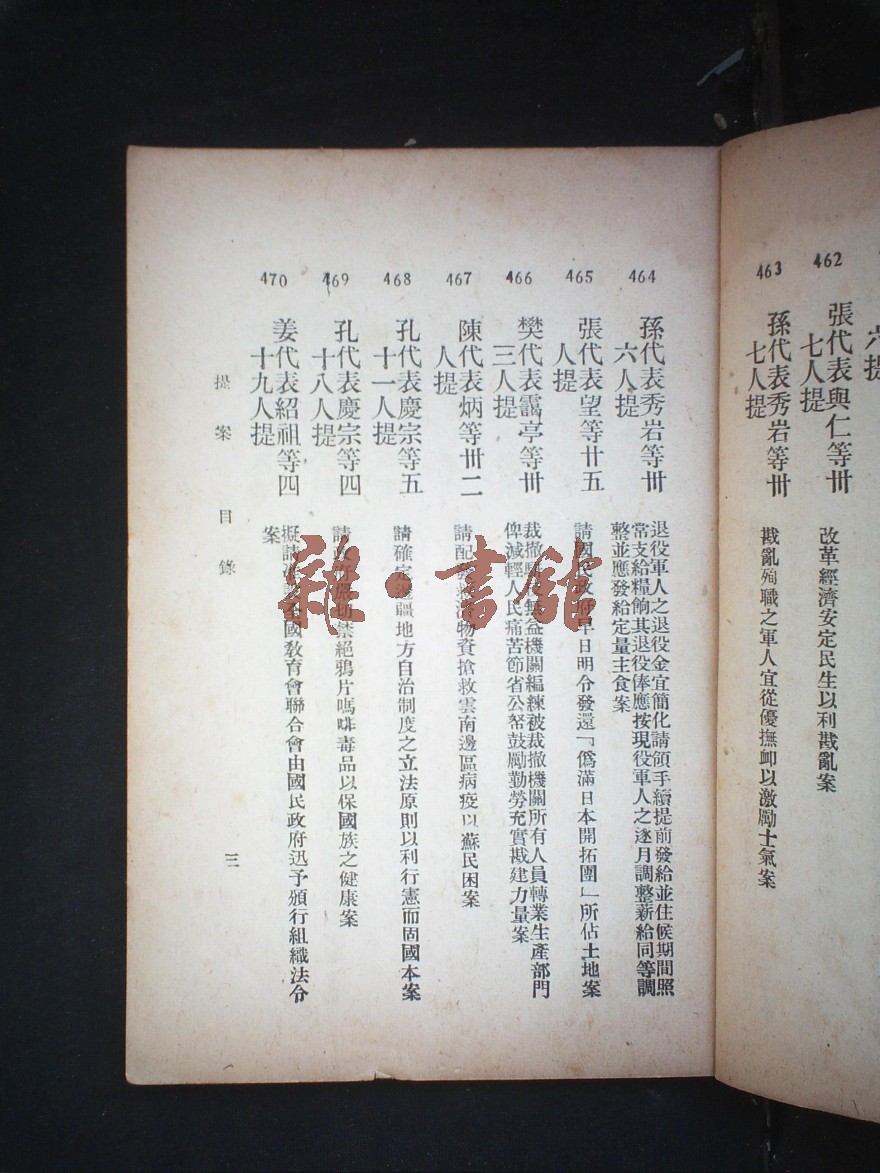 六提
462
張代表與仁等卅
七人提
改革經濟安定民生以利戡亂案
463
孫代表秀岩等卅
七人提
戡亂殉職之軍人宜從優撫卹以激勵士氣案
464
孫代表秀岩等卅
六人提
退役軍人之退役金宜簡化請領手續提前發給並住候期間照
常支給糧餉其退役俸應按現役軍人之逐月調整薪給同等調
整並應發給定量主食案
465
張代表望等廿五
人提
請國民政府早日明令發還「僞滿日本開拓團」所佔土地案
466
樊代表靄亭等卅
三人提
裁撤無益機關編練被裁撤機關所有人員轉業生產部門
俾減輕人民痛苦節省公帑鼓勵勤勞充實戡建力量案
467
陳代表炳等卅二
人提
請配救濟物資搶救雲南邊區病疫以蘇民困案
468
孔代表慶宗等五
十一人提
請確定邊疆地方自治制度之立法原則以利行憲而固國本案
469
孔代表慶宗等四
十八人提
請政府嚴切禁絕鴉片嗎啡毒品以保國族之健康案
470
姜代表紹祖等四
十九人提
擬請全國教育會聯合會由國民政府迅予頒行組織法令
案
提案目錄
三
雜·書館